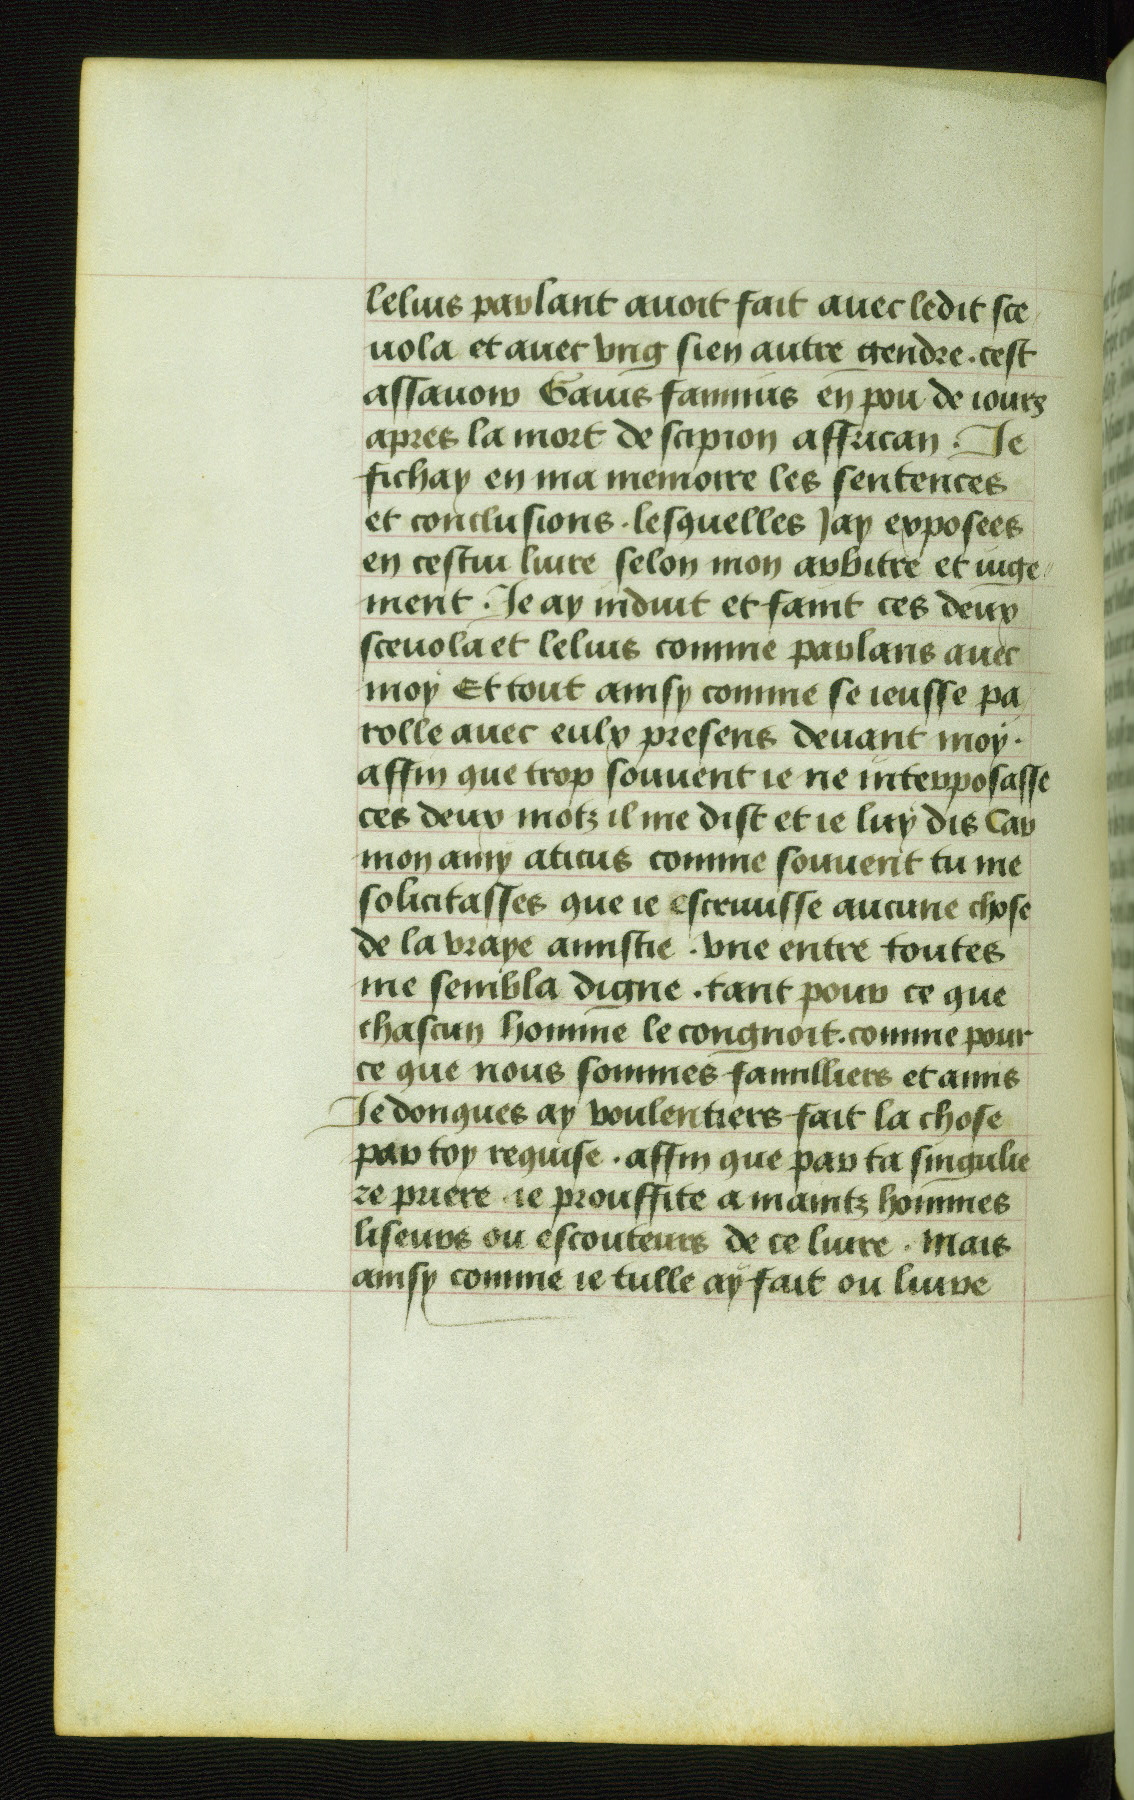 lelius parlant auoit fait auec ledit sce
uola et auec vng sien autre gendre . cest
assauoir Gaius fannius en pou de iours
apres la mort de scipion affrican . Je
fichay en ma memoire les sentences
et conclusions . lesquelles Jay exposees
en cestui liure selon mon arbitre et iuge
ment . Je ay induit et faint ces deux
sceuola et lelius comme parlans auec
moy Et tout ainsy comme se ieusse pa
rolle auec eulx presens deuant moy .
affin que trop souuent ie ne interposasse
ces deux motz il me dist et ie luy dis Car
mon amy aticus comme souuent tu me
solicitasses que ie escruusse aucune chose
de la vraye amistie . vne entre toutes
me sembla digne . tant pour ce que
chascun homme le congnoit . comme pour
ce que nous sommes familliers et amis
Je donques ay voulentiers fait la chose
par toy requise . affin que par ta singulie
re priere ie prouffite a maintz hommes
liseurs ou escouteurs de ce liure . Mais
ainsy comme ie tulle ay fait ou liure